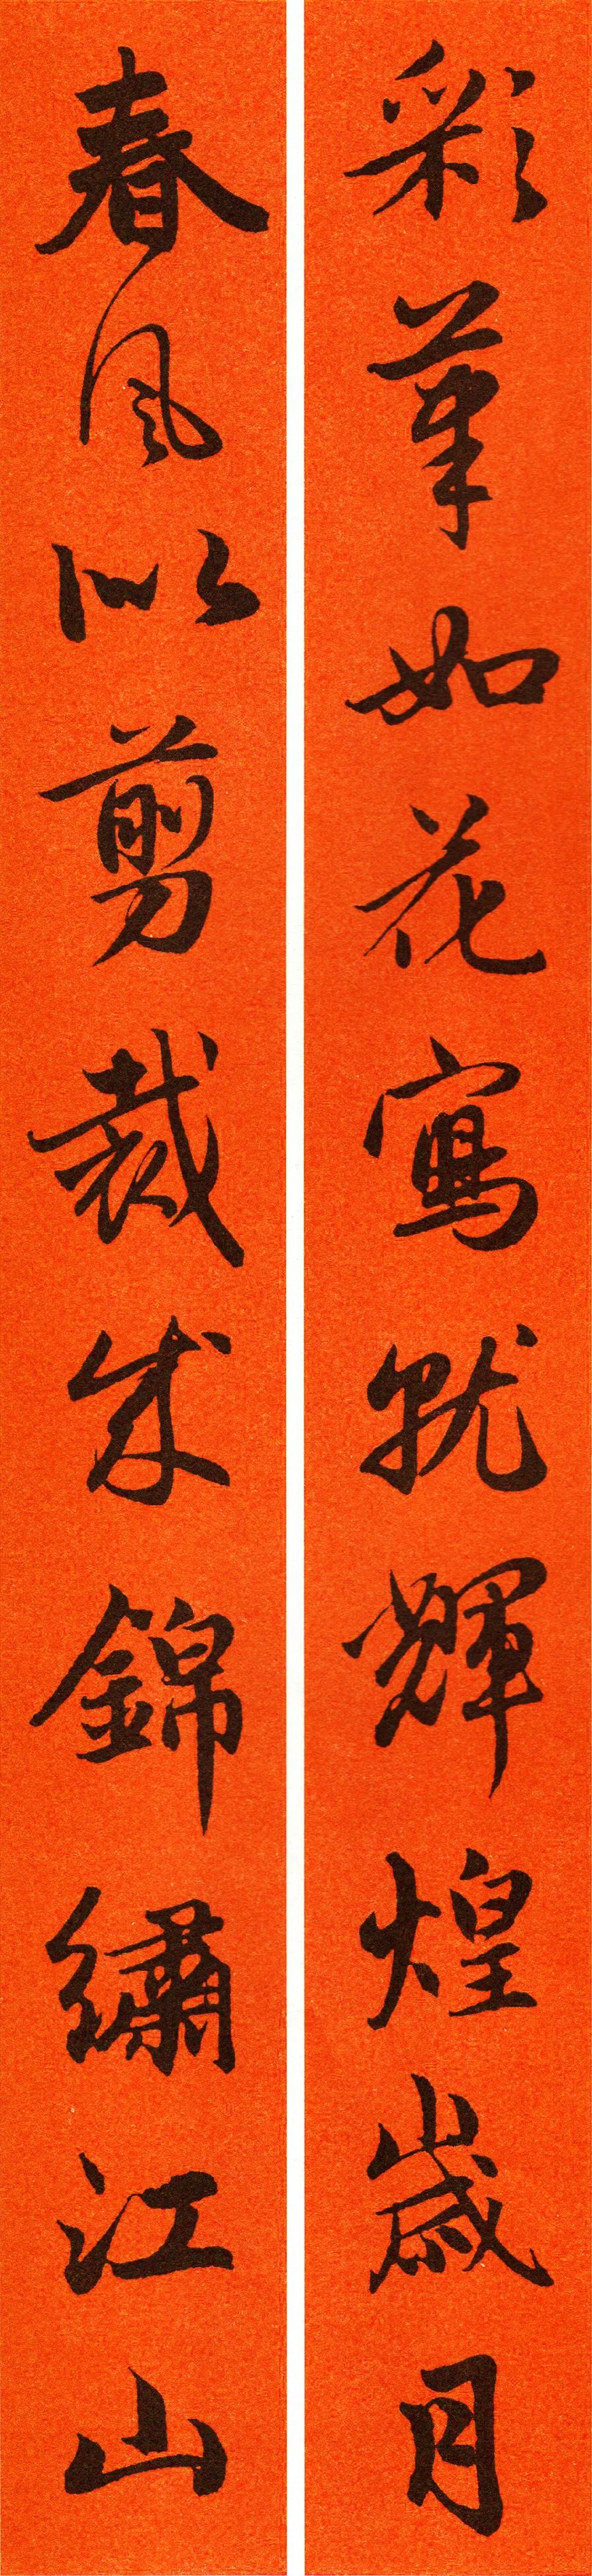 彩筆如花寫就輝煌歲月
春風似剪裁成錦繡江山